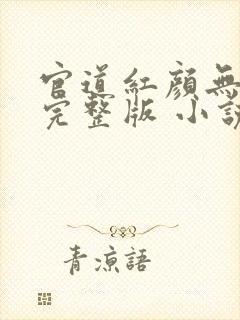 官道紅顏無
完整版 小說
青涼語